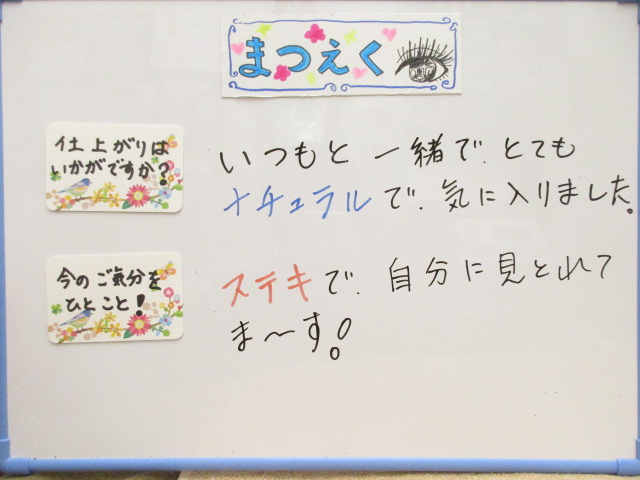 まつえく
仕上がりは
いかがですか?
いつもと一緒で、とても
ナチュラルで、気に入りました。
今のご気分を
ひとこと!
ステキで、自分に見とれて
ま〜す!